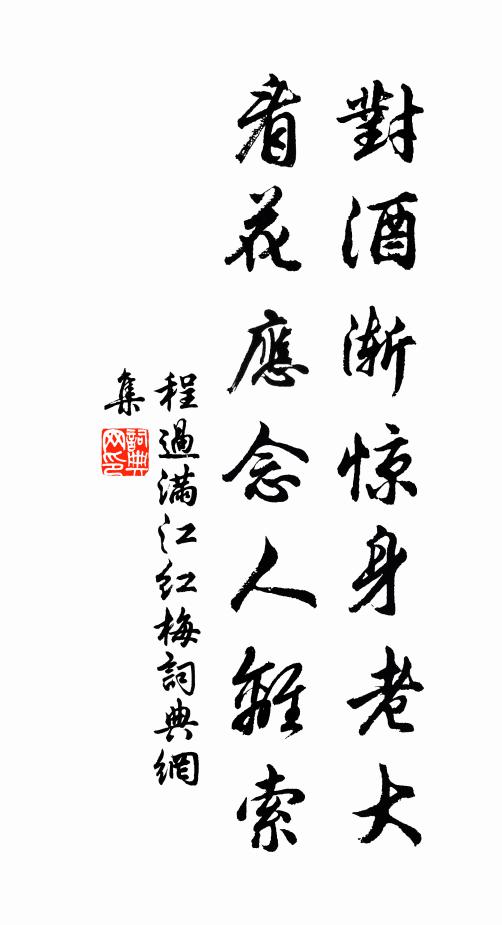 對酒漸惊身老大
看花應念人離索
程過滿江红梅詞典網
集
詞典网印